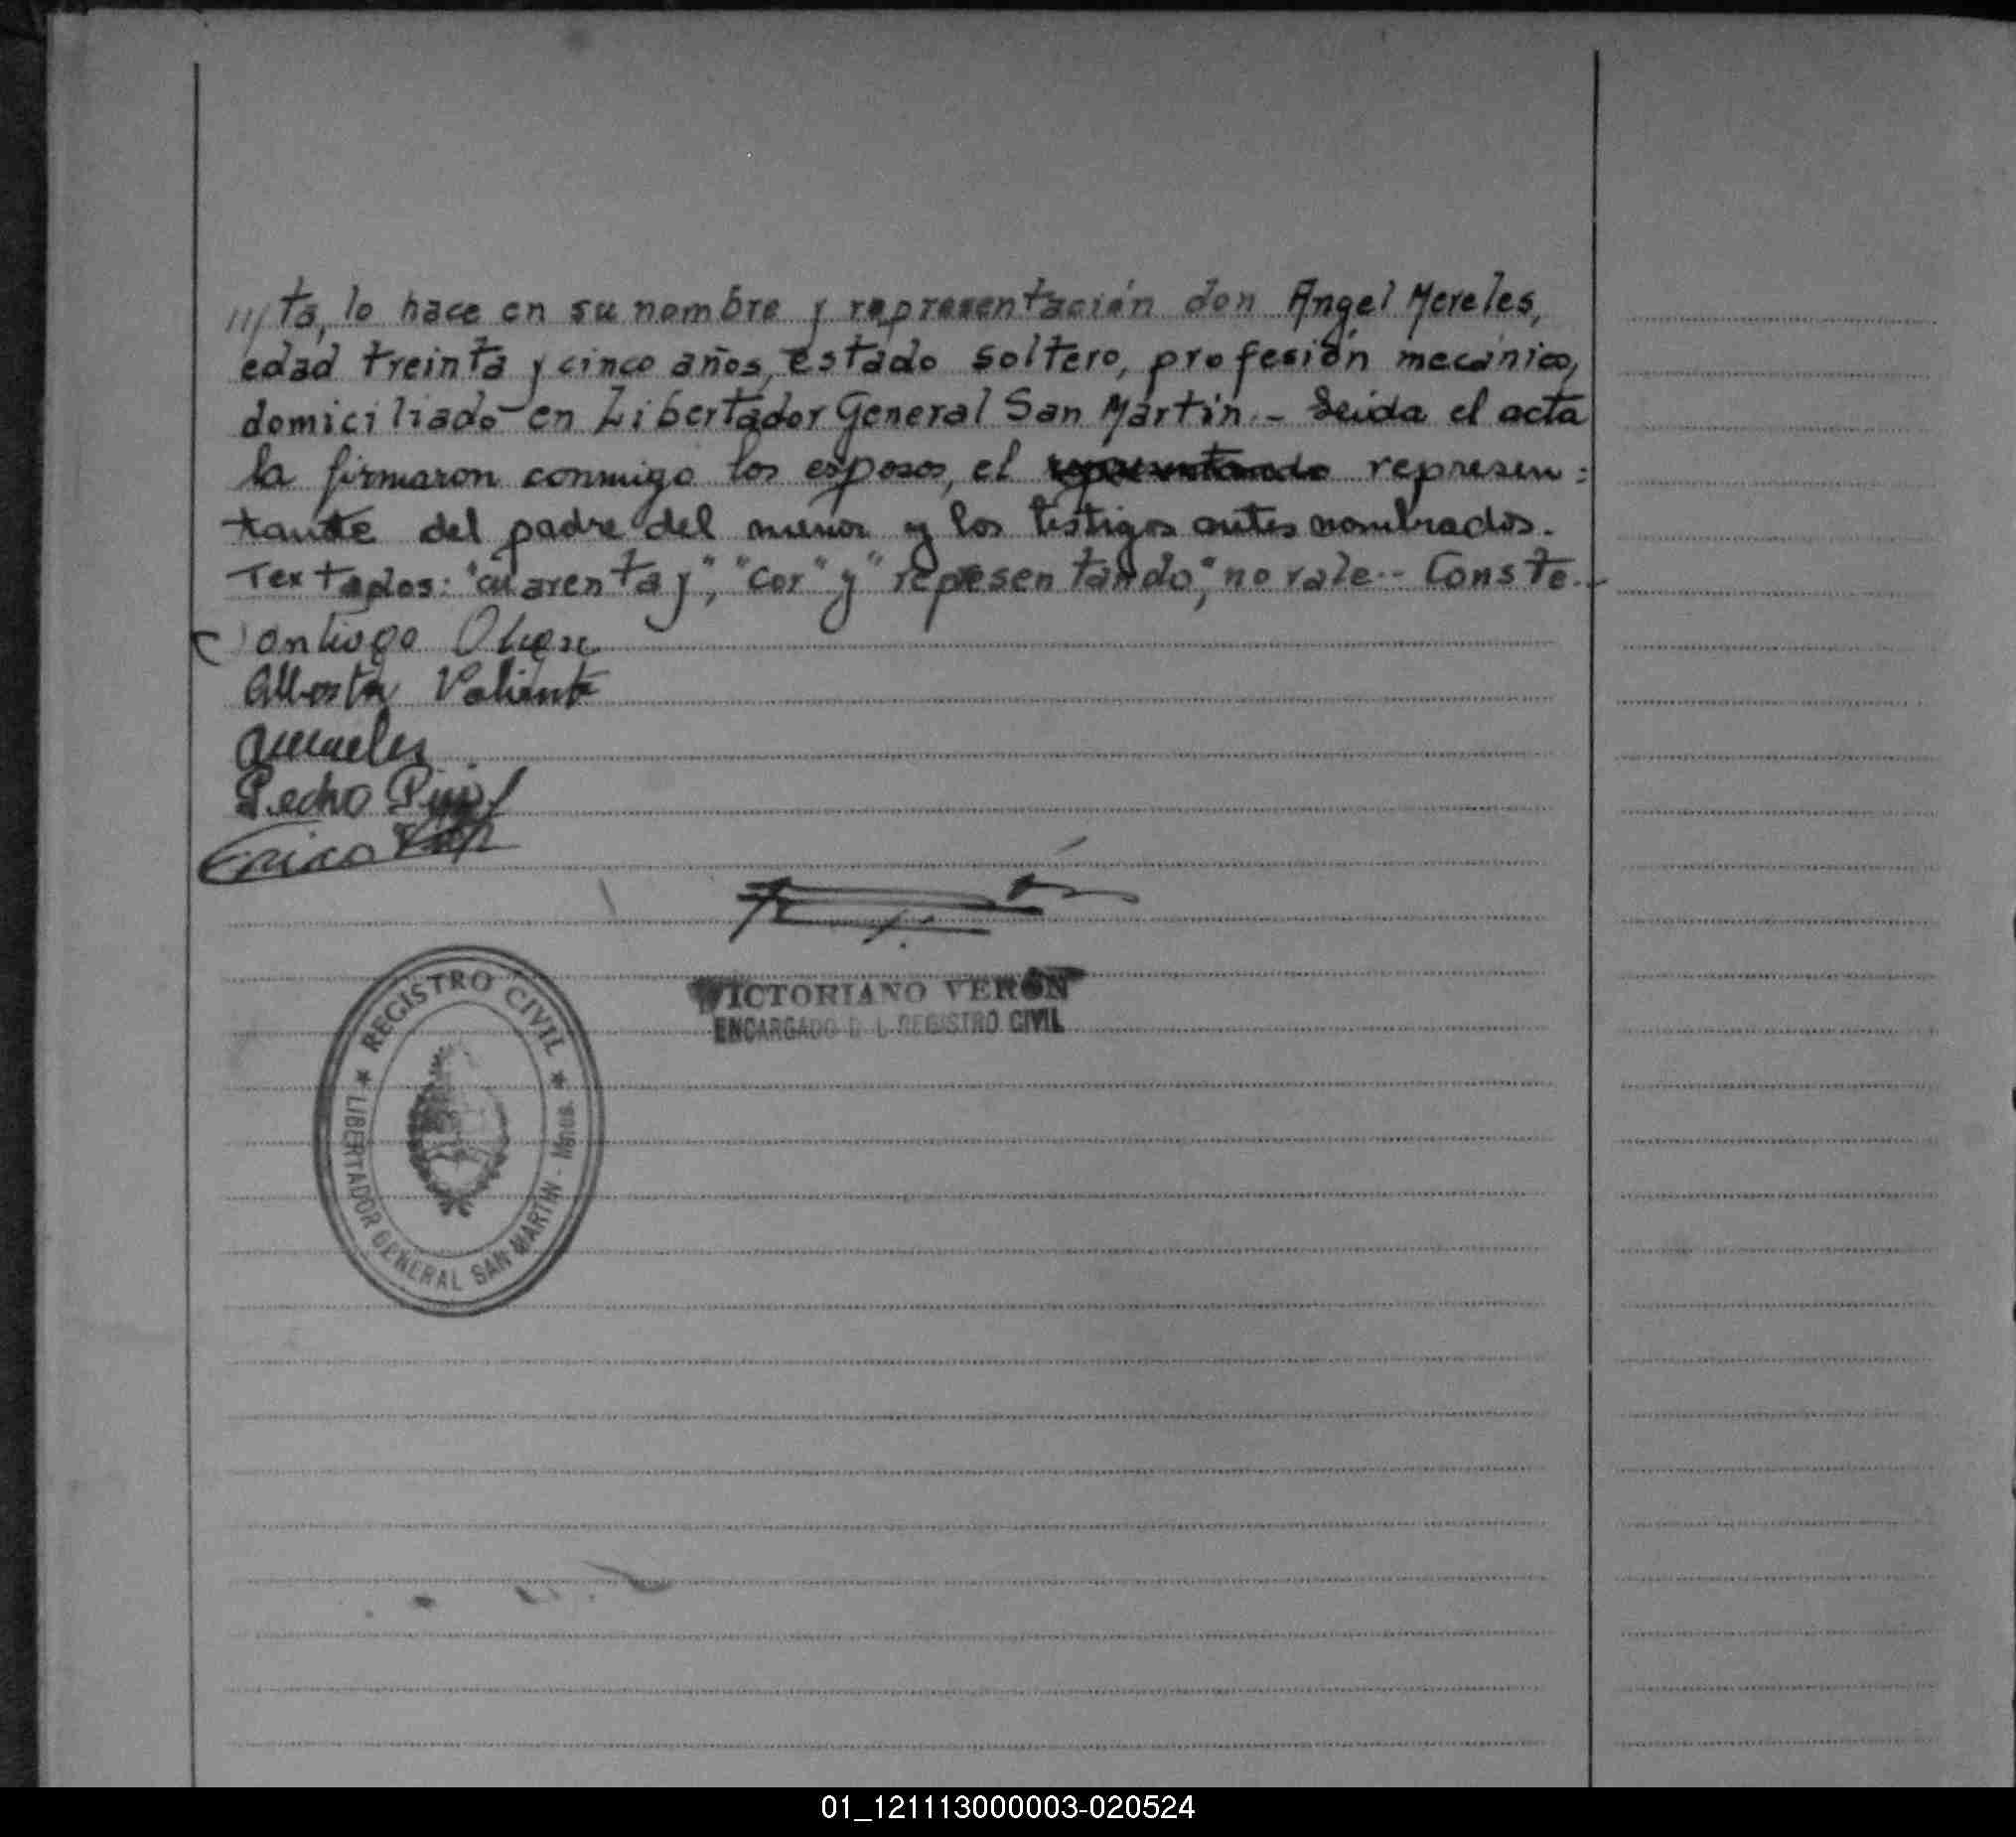 ///ta, lo hace en su nombre y representación don Angel Mereles,
edad treinta y cinco años, estado soltero, profesión mecánico,
domiciliado en Libertador General San Martín.- Leida el acta
la firmaron conmigo los esposos, el representando represen:
tante del padre del menor y los testigos antes nombrados.
Textados: "cuarenta y", "cor" y "representando", no vale.- Conste.-
Santiago
Alberta Valiente
Pedro
Erico
VICTORIANO VERÓN
ENCARGADO DEL REGISTRO CIVIL
★ REGISTRO CIVIL ★
LIBERTADOR GENERAL SAN MARTIN - Mnes.
01_121113000003-020524